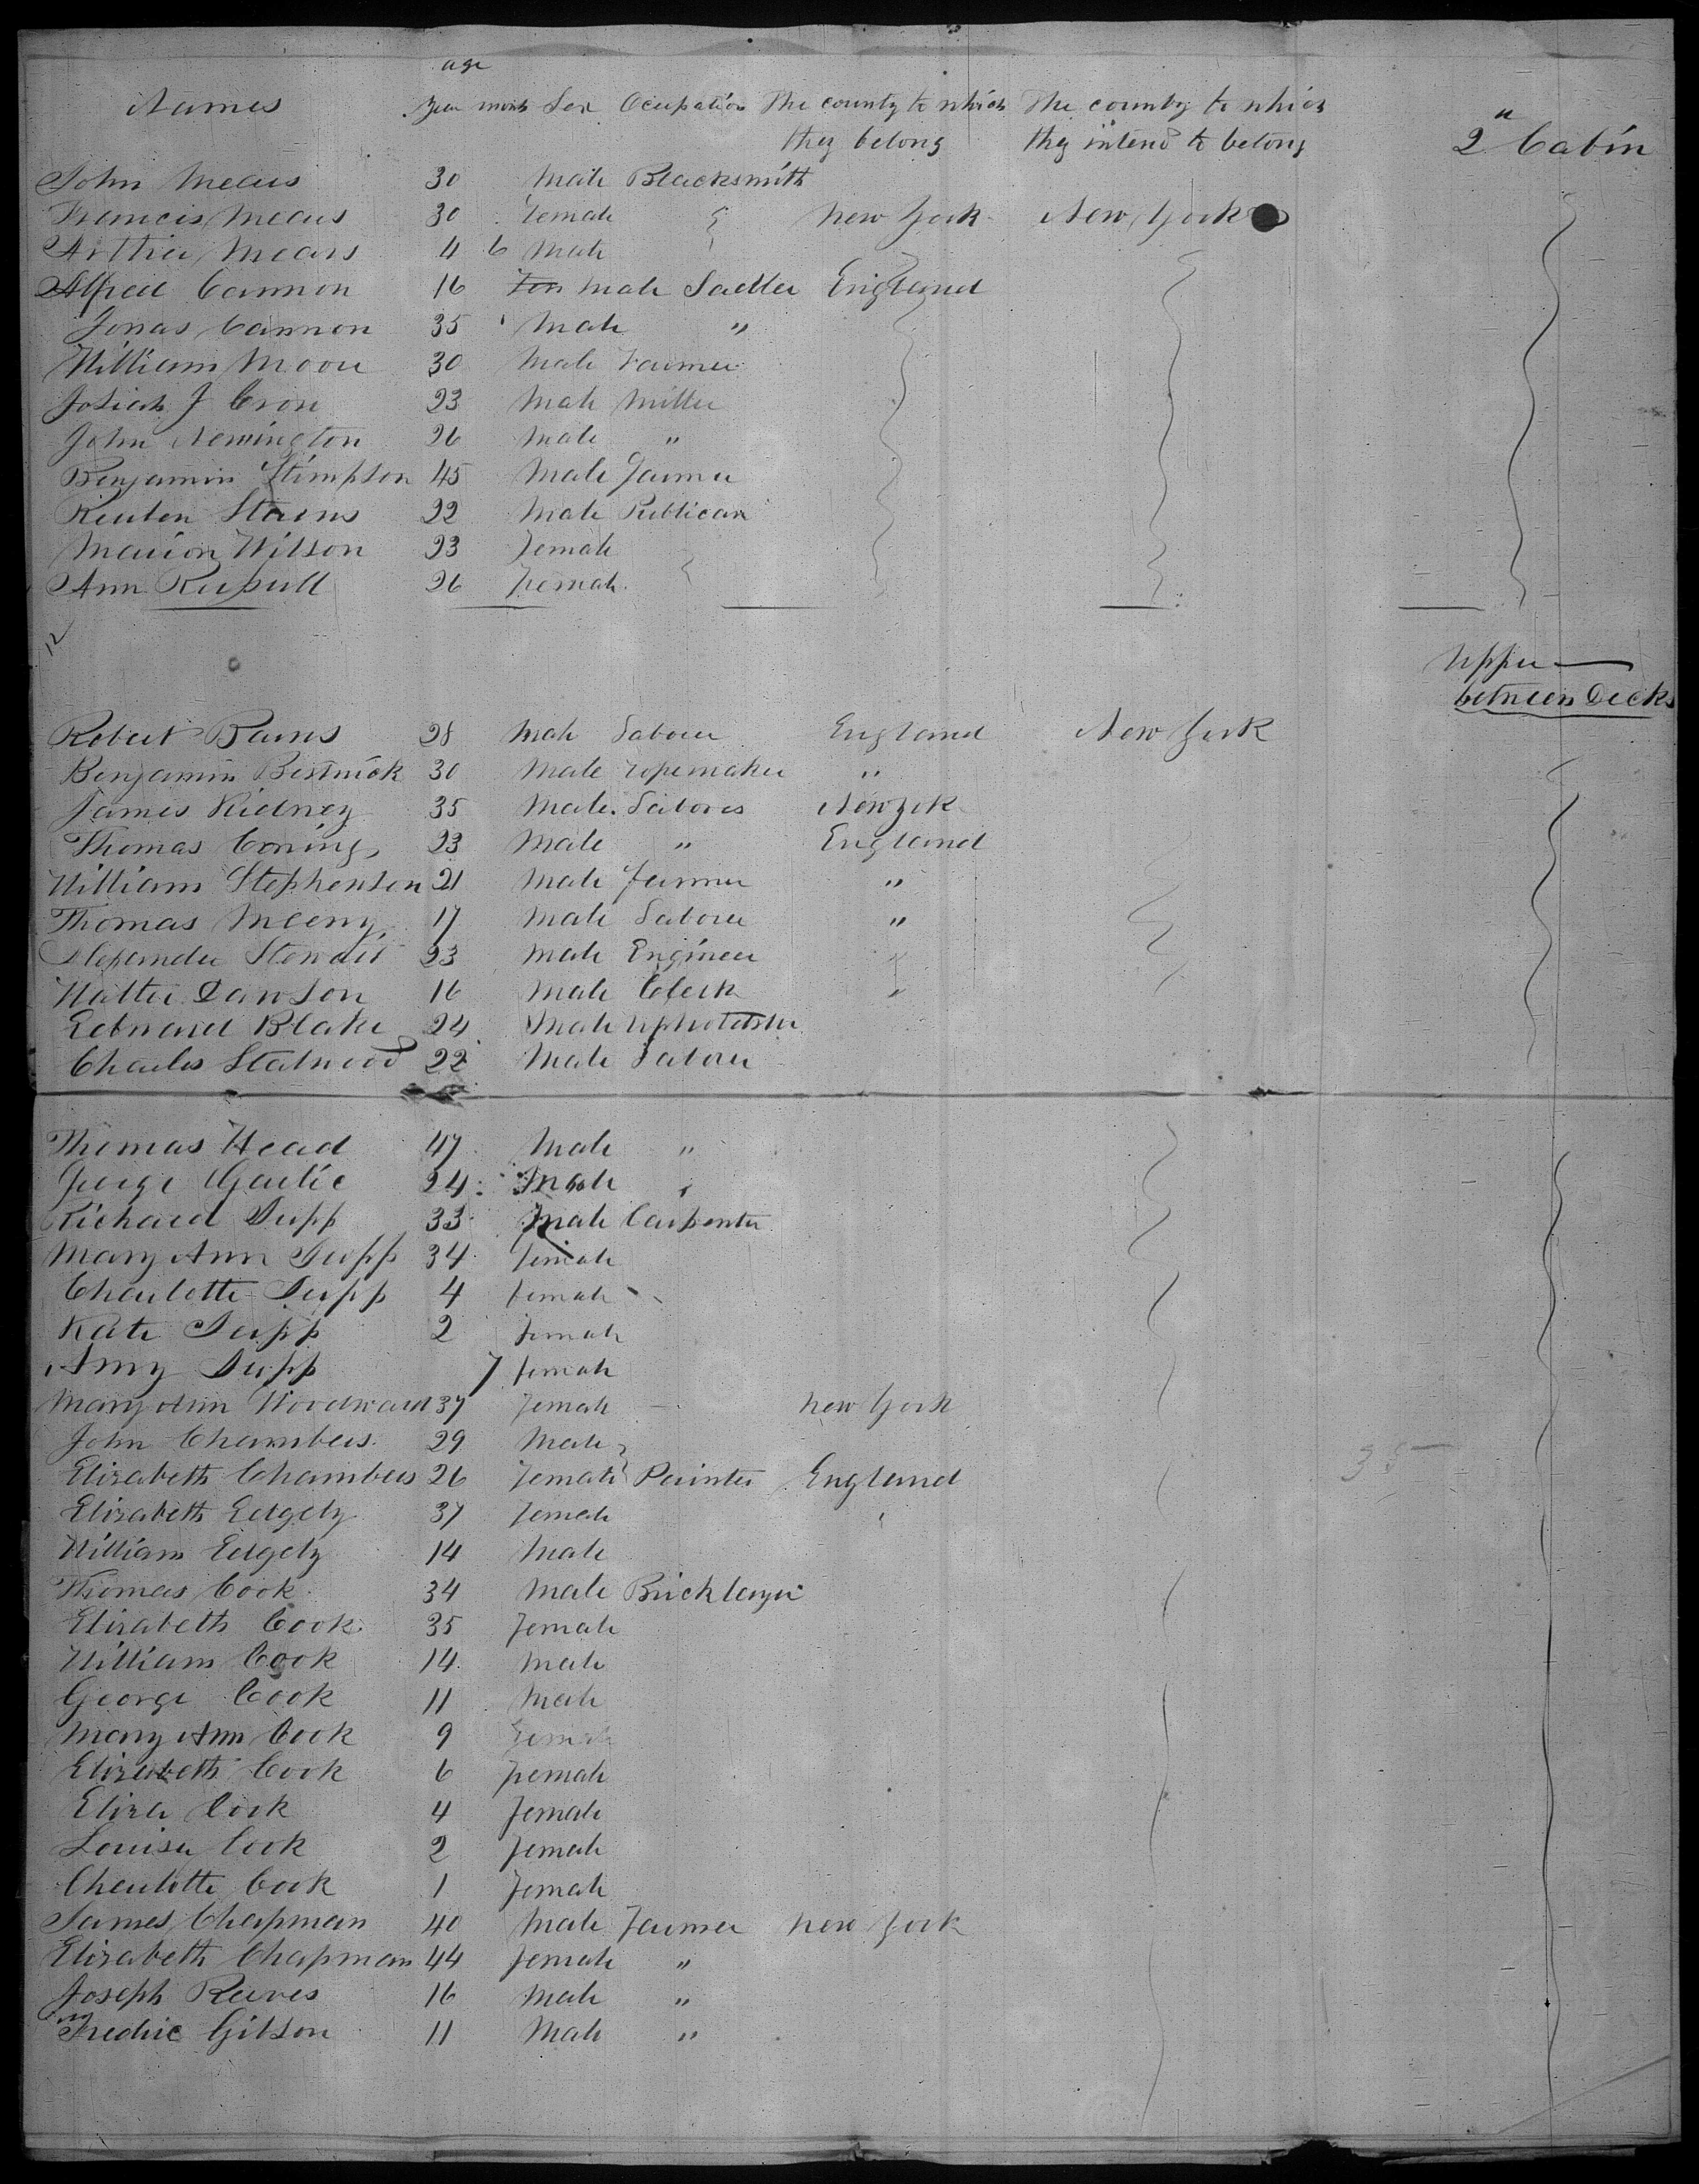 age
Names Year month Sex Ocupation The county to which The county to which
they belong they intend to belong 2n Cabin
John Mears 30 Male Blacksmith
Francis Mears 30 Female New York New York
Arthur Mears 4 6 Male
Alfred Cannon 16 Fem Male Sadler England
Jonas Cannon 35 Male "
William Moore 30 Male Farmer
Josiah J Cron 23 Male Miller
John Newington 26 Male "
Benjamin Stimpson 45 Male Farmer
Reuben Stearns 22 Male Publican
Marion Wilson 23 Female
Ann Russell 26 Female
12
Upper
between Decks
Robert Barns 28 Male Laborer England New York
Benjamin Bestwick 30 Male ropemaker "
James Kidney 35 Male Labores New York
Thomas Coning 23 Male " England
William Stephenson 21 Male Farmer "
Thomas 17 Male Laborer "
Alexander Stewart 23 Male Engineer "
Walter Dawson 16 Male Clerk "
Edward Blake 24 Male Upholstster
Charles Statwood 22 Male Laborer
Thomas Head 47 Male "
George Garlic 24 Male "
Richard Supp 33 Male Carpenter
Mary Ann Supp 34 Female
Charlotte Supp 4 Female
Kate Supp 2 Female
Amy Supp 7 Female
Mary Ann Woodward 37 Female New York
John Chambers 29 Male
Elizabeth Chambers 26 Female Painter England 35
Elizabeth Edgely 37 Female
William Edgely 14 Male
Thomas Cook 34 Male Bricklayer
Elizabeth Cook 35 Female
William Cook 14 Male
George Cook 11 Male
Mary Ann Cook 9 Female
Elizabeth Cook 6 Female
Eliza Cook 4 Female
Louisa Cook 2 Female
Charlotte Cook 1 Female
James Chapman 40 Male Farmer New York
Elizabeth Chapman 44 Female "
Joseph Reeves 16 Male "
Fredric Gibson 11 Male "